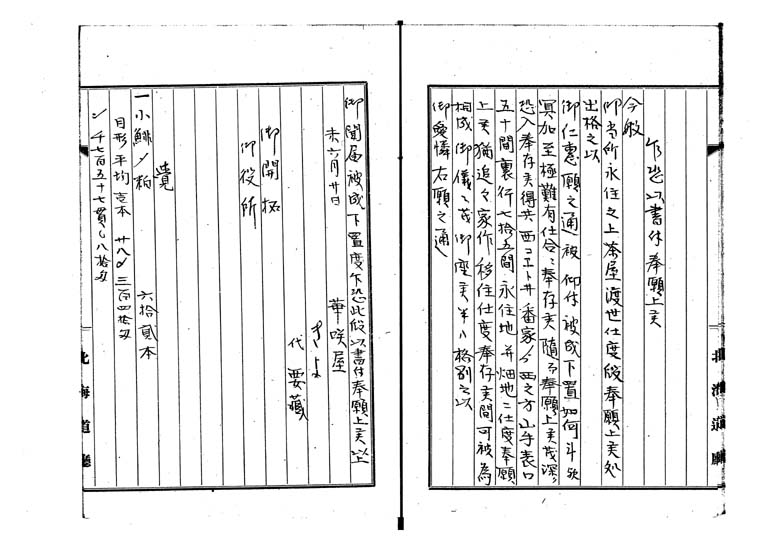 乍恐以書付奉願上候
今般
御当所永住之上茶屋渡世仕度段奉願上候処
出格之以
御仁恵願之通被 仰付被成下置如何斗歟
冥加至極難有仕合ニ奉存候随而奉願上候茂深ク
恐入奉存候得共西コエト井番家ゟ西之方山手表口
五十間裏行七拾五間永住地并畑地ニ仕度奉願
上候猶追々家作移住仕度奉存候間可被為
相成御儀ニ茂御座候半ハ格別之以
御愛憐右願之通
御聞届被成下置度乍恐此段以書付奉願上候以上
未六月廿日
華咲屋
きよ
代 要蔵
御開拓
御役所
覚
一小鯡〆粕 六拾貳本
目形平均壱本 廿八〆三百四拾匁
〆千七百五十七貫〆八拾匁
北海道廳
北海道廳